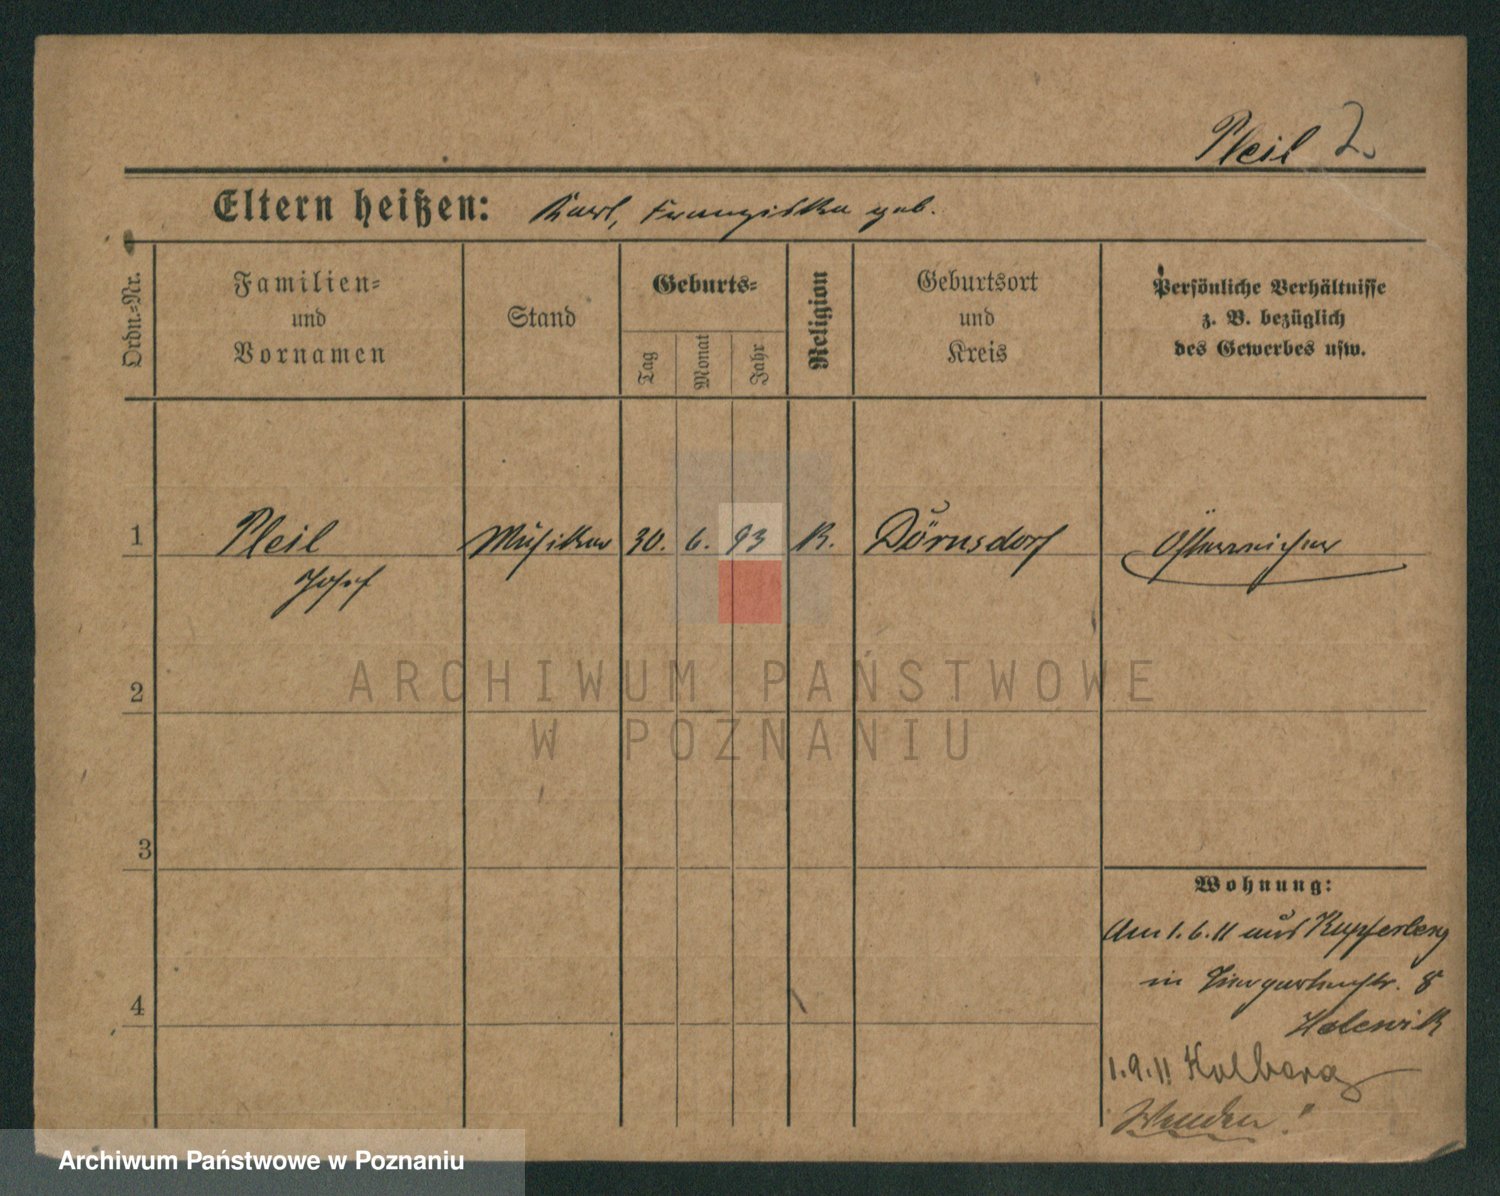 Pleil 2.
Eltern heißen: Karl, Franziska geb.
Ordn.=Nr.
Familien=
und
Vornamen
Stand
Geburts=
Tag
Monat
Jahr
Religion
Geburtsort
und
Kreis
Persönliche Verhältnisse
z. B. bezüglich
des Gewerbes usw.
1 Pleil Musiker 30. 6. 93 K. Dörnsdorf Österreicher
Josef
ARCHIWUM PAŃSTWOWE
W POZNANIU
2
3
Wohnung:
Am 1.6.11 aus Kupferberg
in Tiergartenstr. 8
4
1.9.11 Kolberg
Wenden!
Archiwum Państwowe w Poznaniu